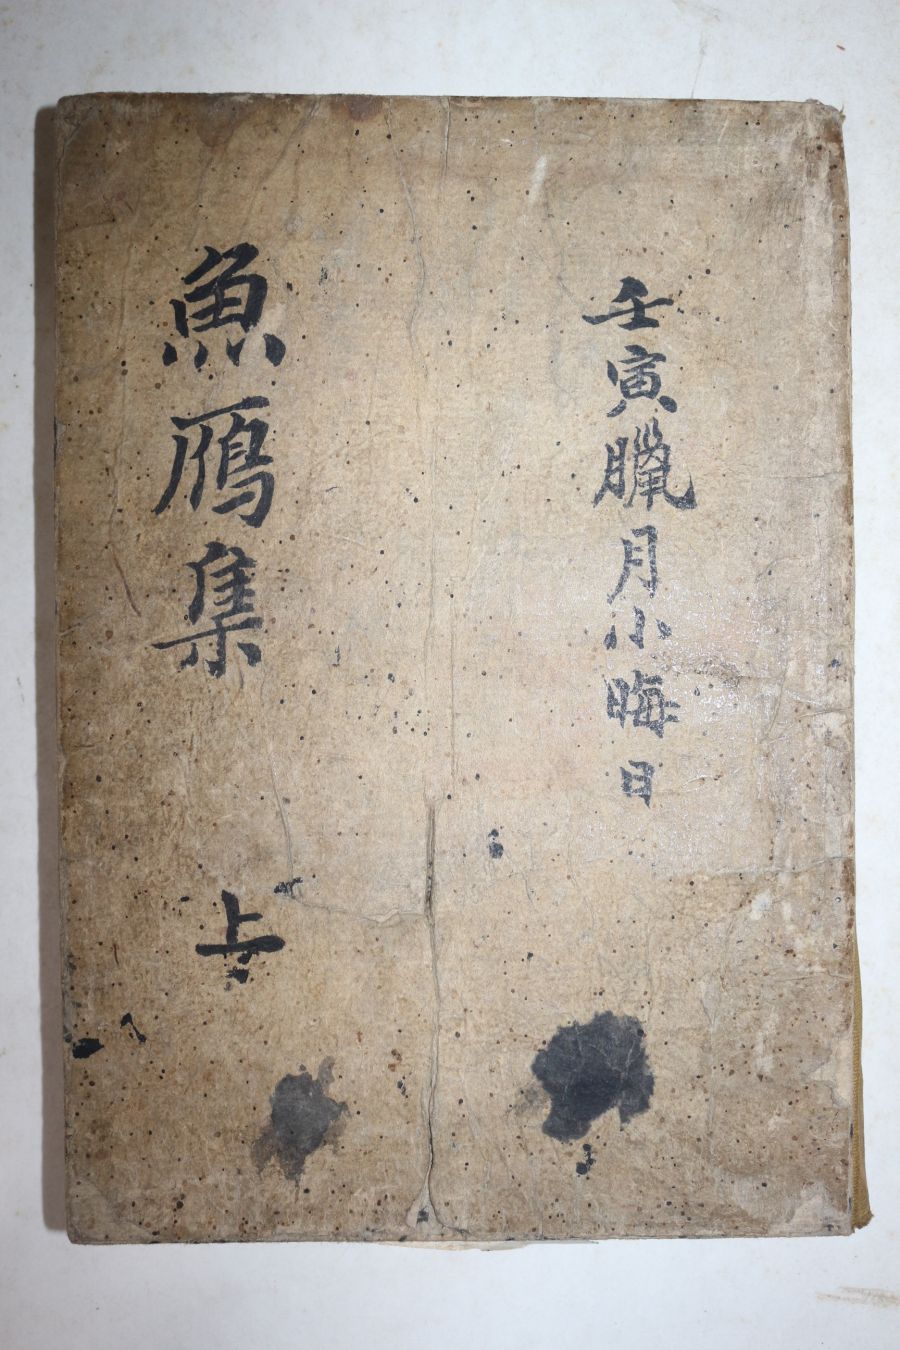 壬寅臘月小晦日
魚鴈集
上